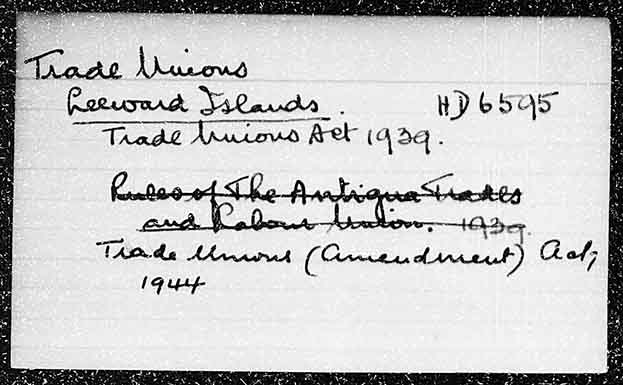 Trade Unions
Leeward Islands. HD6595
Trade Unions Act 1939.
Rules of The Antigua Trades
and Labour Union. 1939.
Trade Unions (Amendment) Act,
1944